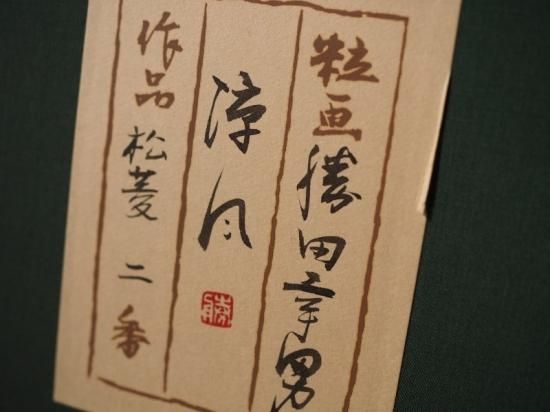 粒画 勝田幸男
涼風
作品 松菱 二番